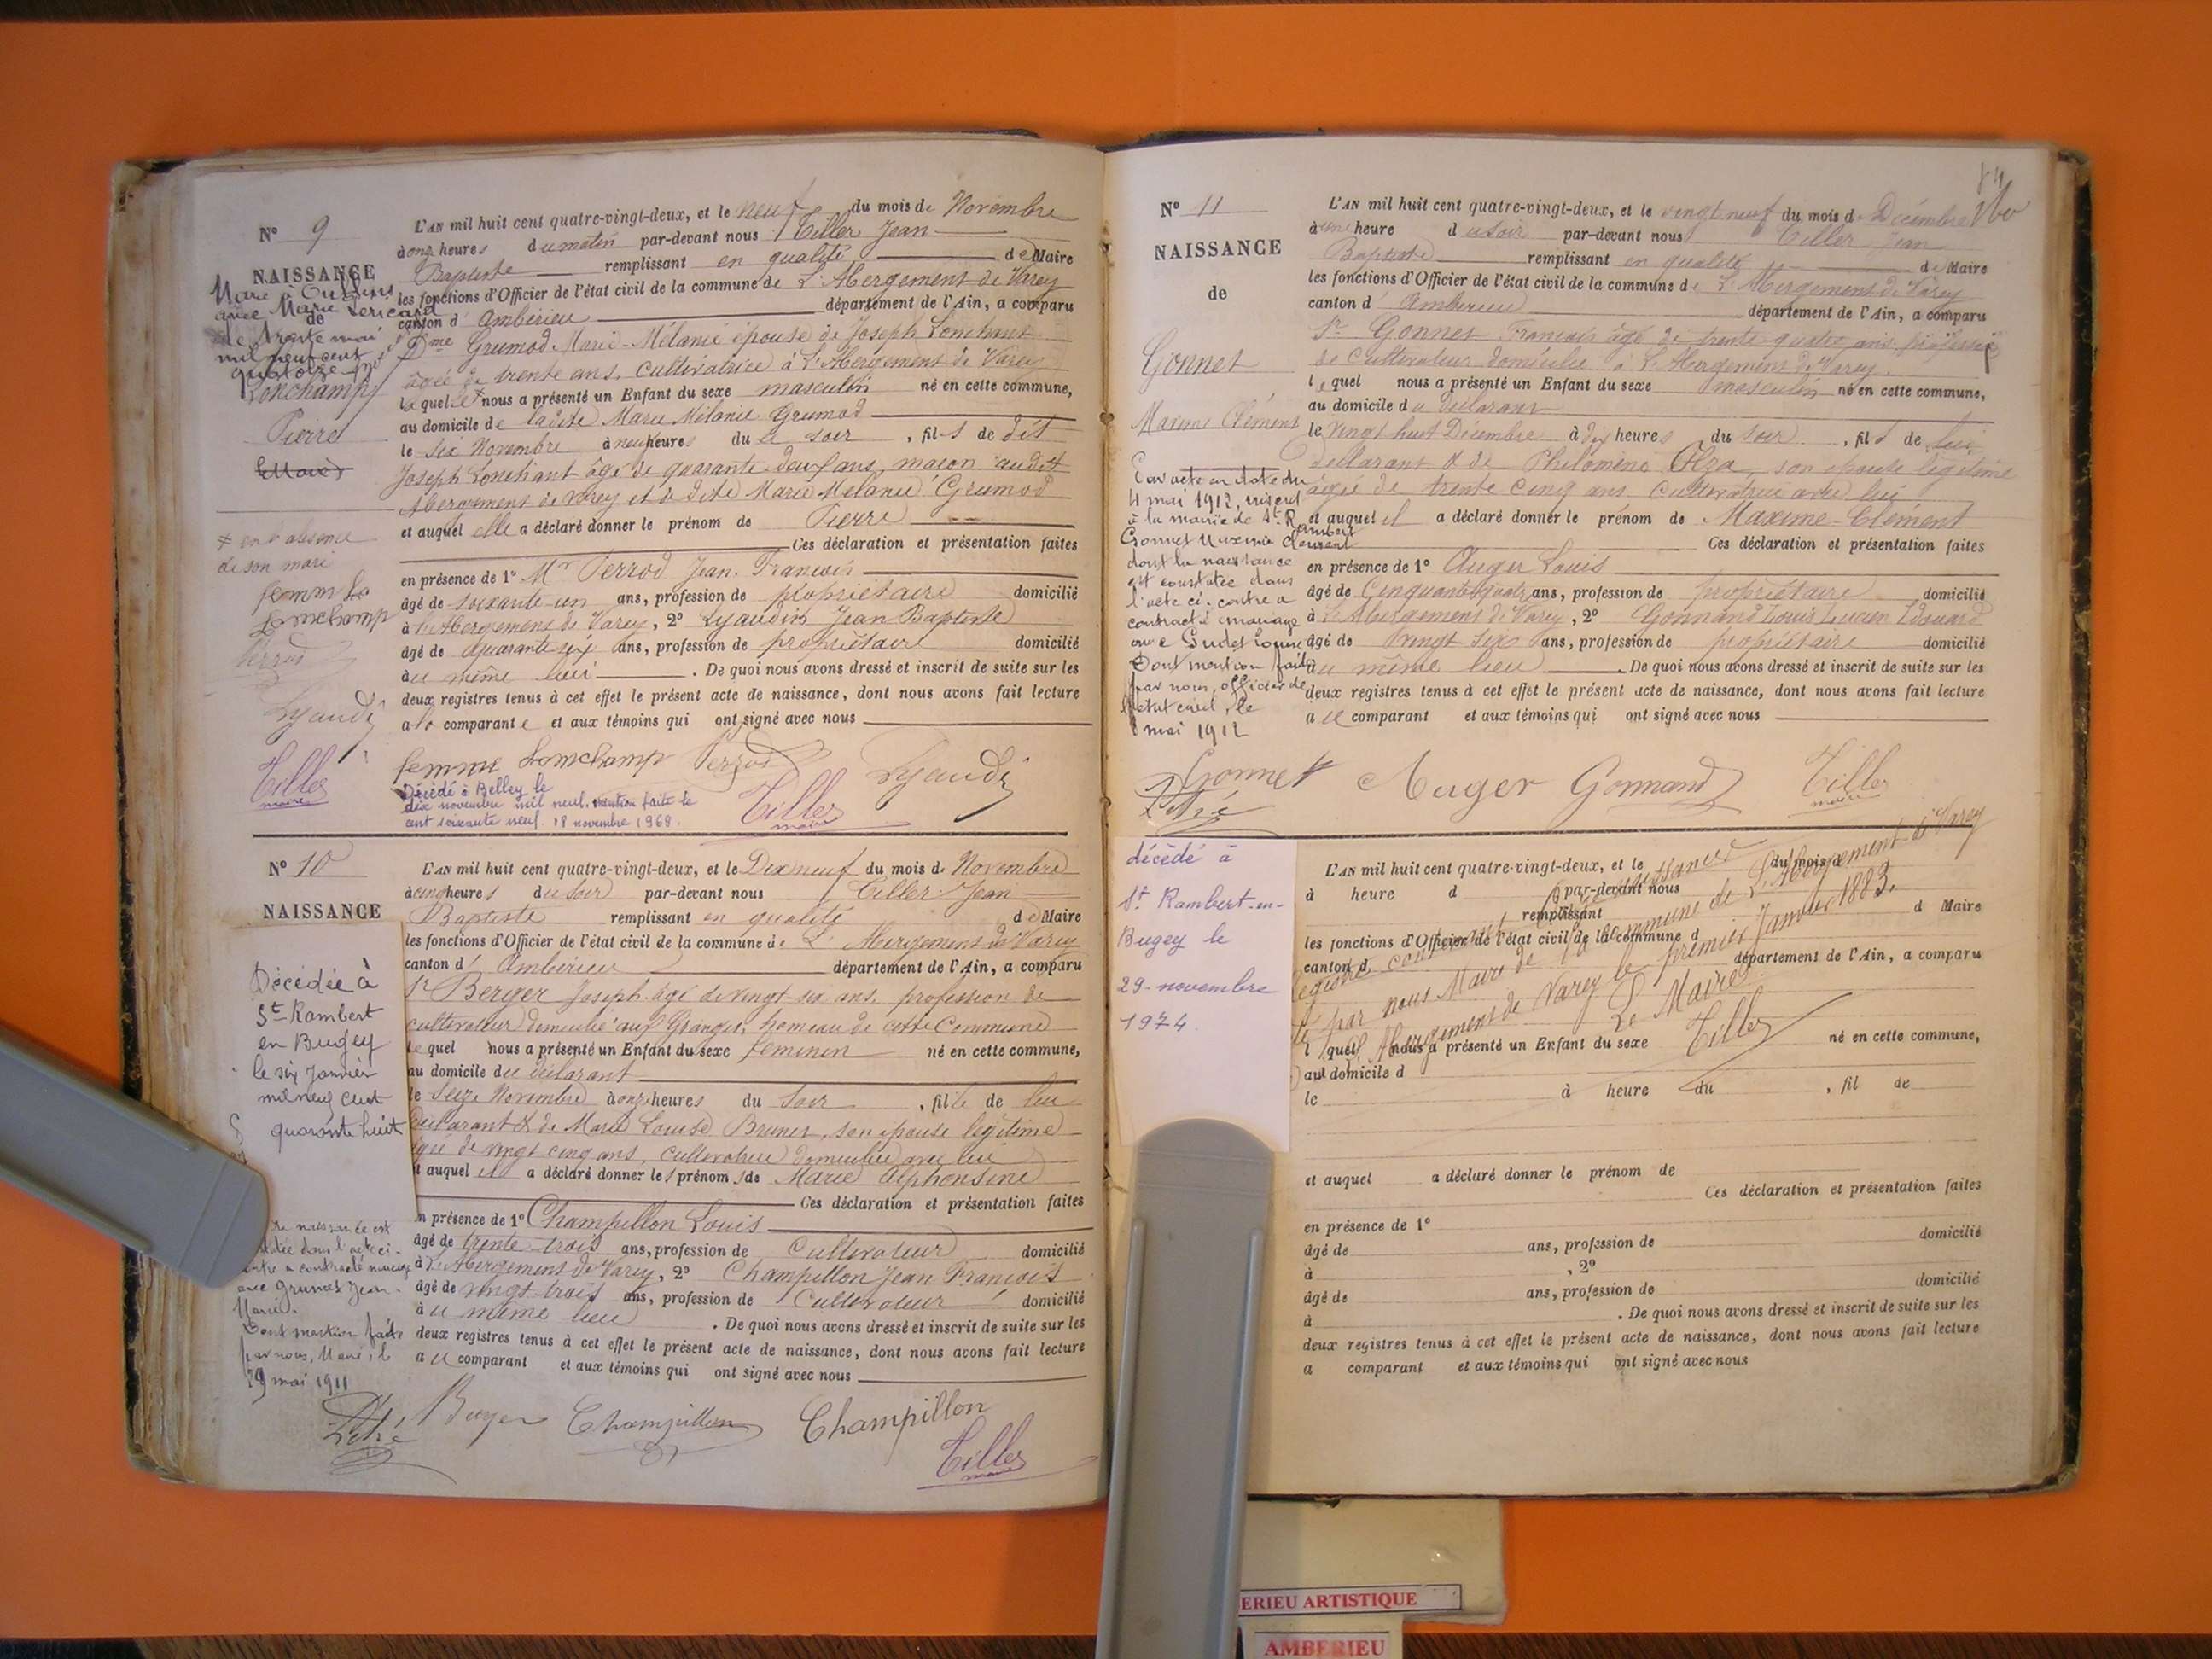 N° 9
NAISSANCE
de
Lonchampt
Pierre
Marié à Oullins
avec Marie
le trente mai
mil neuf cent
quatorze
≠ en l'absence
de son mari
femme Lo
Lomchamp
Perrod
Lyaudi
Tiller
maire
L'AN mil huit cent quatre-vingt-deux, et le neuf du mois de Novembre
à onze heures du matin par-devant nous Tiller Jean
Baptiste remplissant en qualité de Maire
les fonctions d'Officier de l'état civil de la commune de L'Abergement de Varey
canton d'Ambérieu département de l'Ain, a comparu
Dme Grumod Marie-Mélanie épouse de Joseph Lonchant
âgée de trente ans, cultivatrice à L'Abergement de Varey
laquelle nous a présenté un Enfant du sexe masculin né en cette commune,
au domicile de ladite Marie Mélanie Grumod
le six Novembre à neuf heures du soir, fils de dit
Joseph Lonchant âgé de quarante deux ans, maçon audit
Abergement de Varey et de dite Marie Mélanie Grumod
et auquel elle a déclaré donner le prénom de Pierre
Ces déclaration et présentation faites
en présence de 1° Mr Perrod Jean-François
âgé de soixante-un ans, profession de propriétaire domicilié
à L'Abergement de Varey, 2° Lyaudin Jean Baptiste
âgé de quarante six ans, profession de propriétaire domicilié
au même lieu. De quoi nous avons dressé et inscrit de suite sur les
deux registres tenus à cet effet le présent acte de naissance, dont nous avons fait lecture
a la comparante et aux témoins qui ont signé avec nous
femme Lomchamp Perrod Lyaudi
Décédé à Belley le
dix novembre mil neuf. mention faite le
cent soixante neuf. 18 novembre 1969.
Tiller
maire
N° 10
NAISSANCE
Décédée à
St Rambert
en Bugey
le six Janvier
mil neuf cent
quarante huit
naissance est
dans l'acte ci-
contracté mariage
avec Grumet Jean-
Marie.
Dont mention faite
par nous, Maire, le
29 mai 1911
L'AN mil huit cent quatre-vingt-deux, et le Dix neuf du mois de Novembre
à cinq heures du soir par-devant nous Tiller Jean
Baptiste remplissant en qualité de Maire
les fonctions d'Officier de l'état civil de la commune de L'Abergement de Varey
canton d'Ambérieu département de l'Ain, a comparu
Sr Berger Joseph âgé de vingt six ans, profession de
cultivateur domicilié aux Granges, hameau de cette Commune
lequel nous a présenté un Enfant du sexe féminin né en cette commune,
au domicile du déclarant
le Seize Novembre à onze heures du soir, fille de lui
déclarant & de Marie Louise Brunet, son épouse légitime
âgée de vingt cinq ans, cultivatrice domiciliée avec lui
et auquel il a déclaré donner les prénoms de Marie Alphonsine
Ces déclaration et présentation faites
en présence de 1° Champillon Louis
âgé de trente trois ans, profession de Cultivateur domicilié
à L'Abergement de Varey, 2° Champillon Jean François
âgé de vingt trois ans, profession de Cultivateur domicilié
au même lieu. De quoi nous avons dressé et inscrit de suite sur les
deux registres tenus à cet effet le présent acte de naissance, dont nous avons fait lecture
au comparant et aux témoins qui ont signé avec nous
Berger Champillon Champillon
Tiller
maire
84
N° 11
NAISSANCE
de
Gonnet
Maxime Clément
Par acte en date du
4 mai 1912, inscrit
à la mairie de St Rambert
Gonnet Maxime Clément
dont la naissance
est constatée dans
l'acte ci-contre a
contracté mariage
avec Gudet Louise
Dont mention faite
par nous, officier de
l'état civil, le
8 mai 1912
L'AN mil huit cent quatre-vingt-deux, et le vingt neuf du mois de Décembre
à une heure du soir par-devant nous Tiller Jean
Baptiste remplissant en qualité de Maire
les fonctions d'Officier de l'état civil de la commune de L'Abergement de Varey
canton d'Ambérieu département de l'Ain, a comparu
Sr Gonnet François âgé de trente-quatre ans, profession
de Cultivateur domicilié à L'Abergement de Varey.
lequel nous a présenté un Enfant du sexe masculin né en cette commune,
au domicile du déclarant
le vingt huit Décembre à dix heures du soir, fils de lui
déclarant & de Philomène Olza, son épouse légitime
âgée de trente cinq ans cultivatrice avec lui
et auquel il a déclaré donner le prénom de Maxime-Clément
Ces déclaration et présentation faites
en présence de 1° Auger Louis
âgé de Cinquante quatre ans, profession de propriétaire domicilié
à L'Abergement de Varey, 2° Gonnand Louis Lucien Edouard
âgé de vingt six ans, profession de propriétaire domicilié
au même lieu. De quoi nous avons dressé et inscrit de suite sur les
deux registres tenus à cet effet le présent acte de naissance, dont nous avons fait lecture
au comparant et aux témoins qui ont signé avec nous
Gonnet Auger Gonnand Tiller
maire
décédé à
St Rambert-en-
Bugey le
29 novembre
1974.
L'AN mil huit cent quatre-vingt-deux, et le du mois d
à heure d par-devant nous
remplissant d Maire
les fonctions d'Officier de l'état civil de la commune d
canton d département de l'Ain, a comparu
naissances
de la commune de L'Abergement de Varey
par nous Maire de
L'Abergement de Varey le premier Janvier 1883.
Le Maire
Tiller
l quel nous a présenté un Enfant du sexe né en cette commune,
au domicile d
le à heure du , fil de
et auquel a déclaré donner le prénom de
Ces déclaration et présentation faites
en présence de 1°
âgé de ans, profession de domicilié
à , 2°
âgé de ans, profession de domicilié
à . De quoi nous avons dressé et inscrit de suite sur les
deux registres tenus à cet effet le présent acte de naissance, dont nous avons fait lecture
a comparant et aux témoins qui ont signé avec nous
ERIEU ARTISTIQUE
AMBERIEU